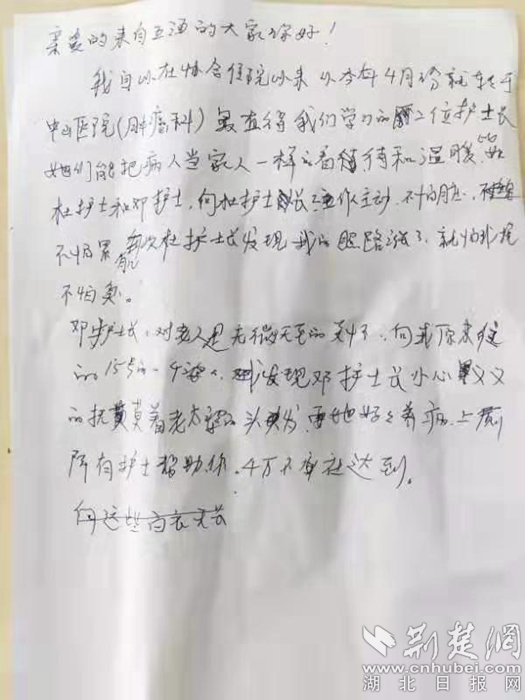 亲爱的来自五湖的大家你好!
我自从在协合住院以来 从今年4月份就转于
中山医院(肿瘤科) 最值得我们学习的二位护士长
她们能把病人当家人一样的看待和温暖 如
杜护士和邓护士,向杜护士长工作主动.不怕脏.
不怕累 每次杜护士长发现我的 路 了.就
不怕臭。
邓护士长.对老人是无微不至的关 .向我原来住
的155的 发现邓护士长小心翼义
的抚摸着老太 的头发.要她好好养病.上厕
所有护士帮助你.4万不要 达到.
向这些白衣天
荆楚網
www.cnhubei.com
湖北日报网